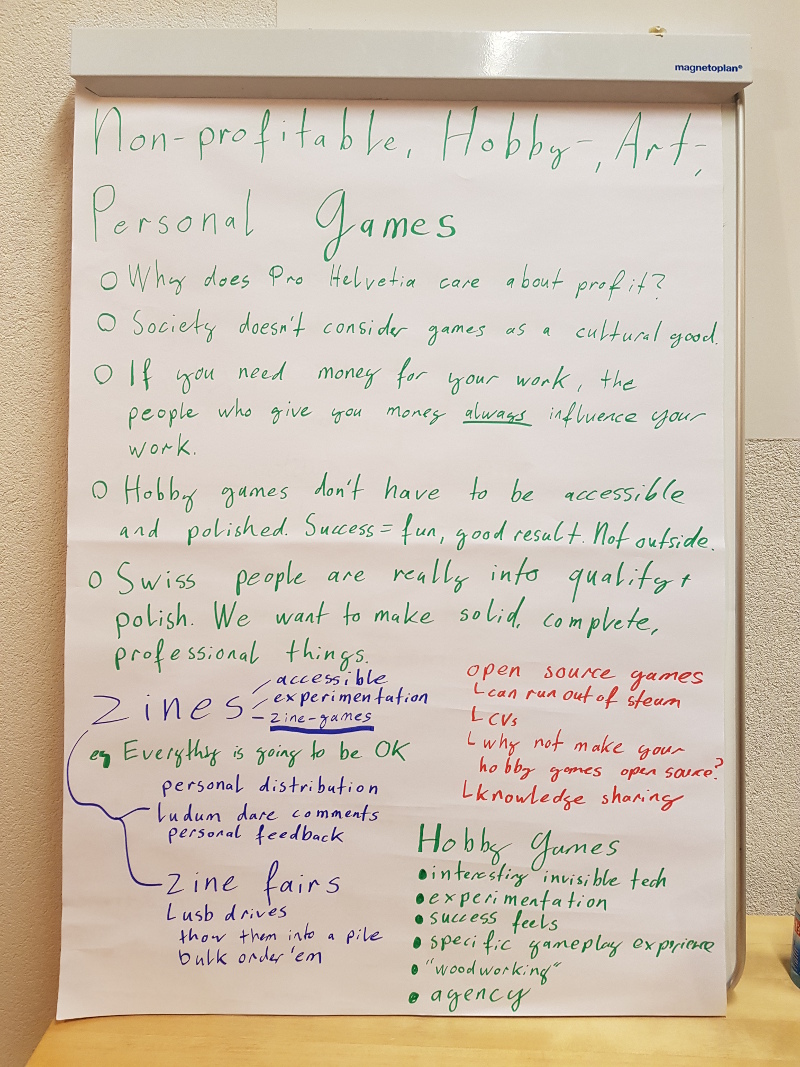 magnetoplan®
Non-profitable, Hobby-, Art-,
Personal Games
O Why does Pro Helvetia care about profit?
O Society doesn't consider games as a cultural good.
O If you need money for your work, the
people who give you money always influence your
work.
O Hobby games don't have to be accessible
and polished. Success = fun, good result. Not outside.
O Swiss people are really into quality +
polish. We want to make solid, complete,
professional things.
Zines
accessible
experimentation
zine-games
eg Everythig is going to be OK
personal distribution
Ludum dare comments
personal feedback
Zine fairs
usb drives
thow them into a pile
bulk order 'em
open source games
can run out of steam
CVs
why not make your
hobby games open source?
knowledge sharing
Hobby Games
• interestig invisible tech
• experimentation
• success feels
• specific gameplay expirience
• "woodworking"
• agency